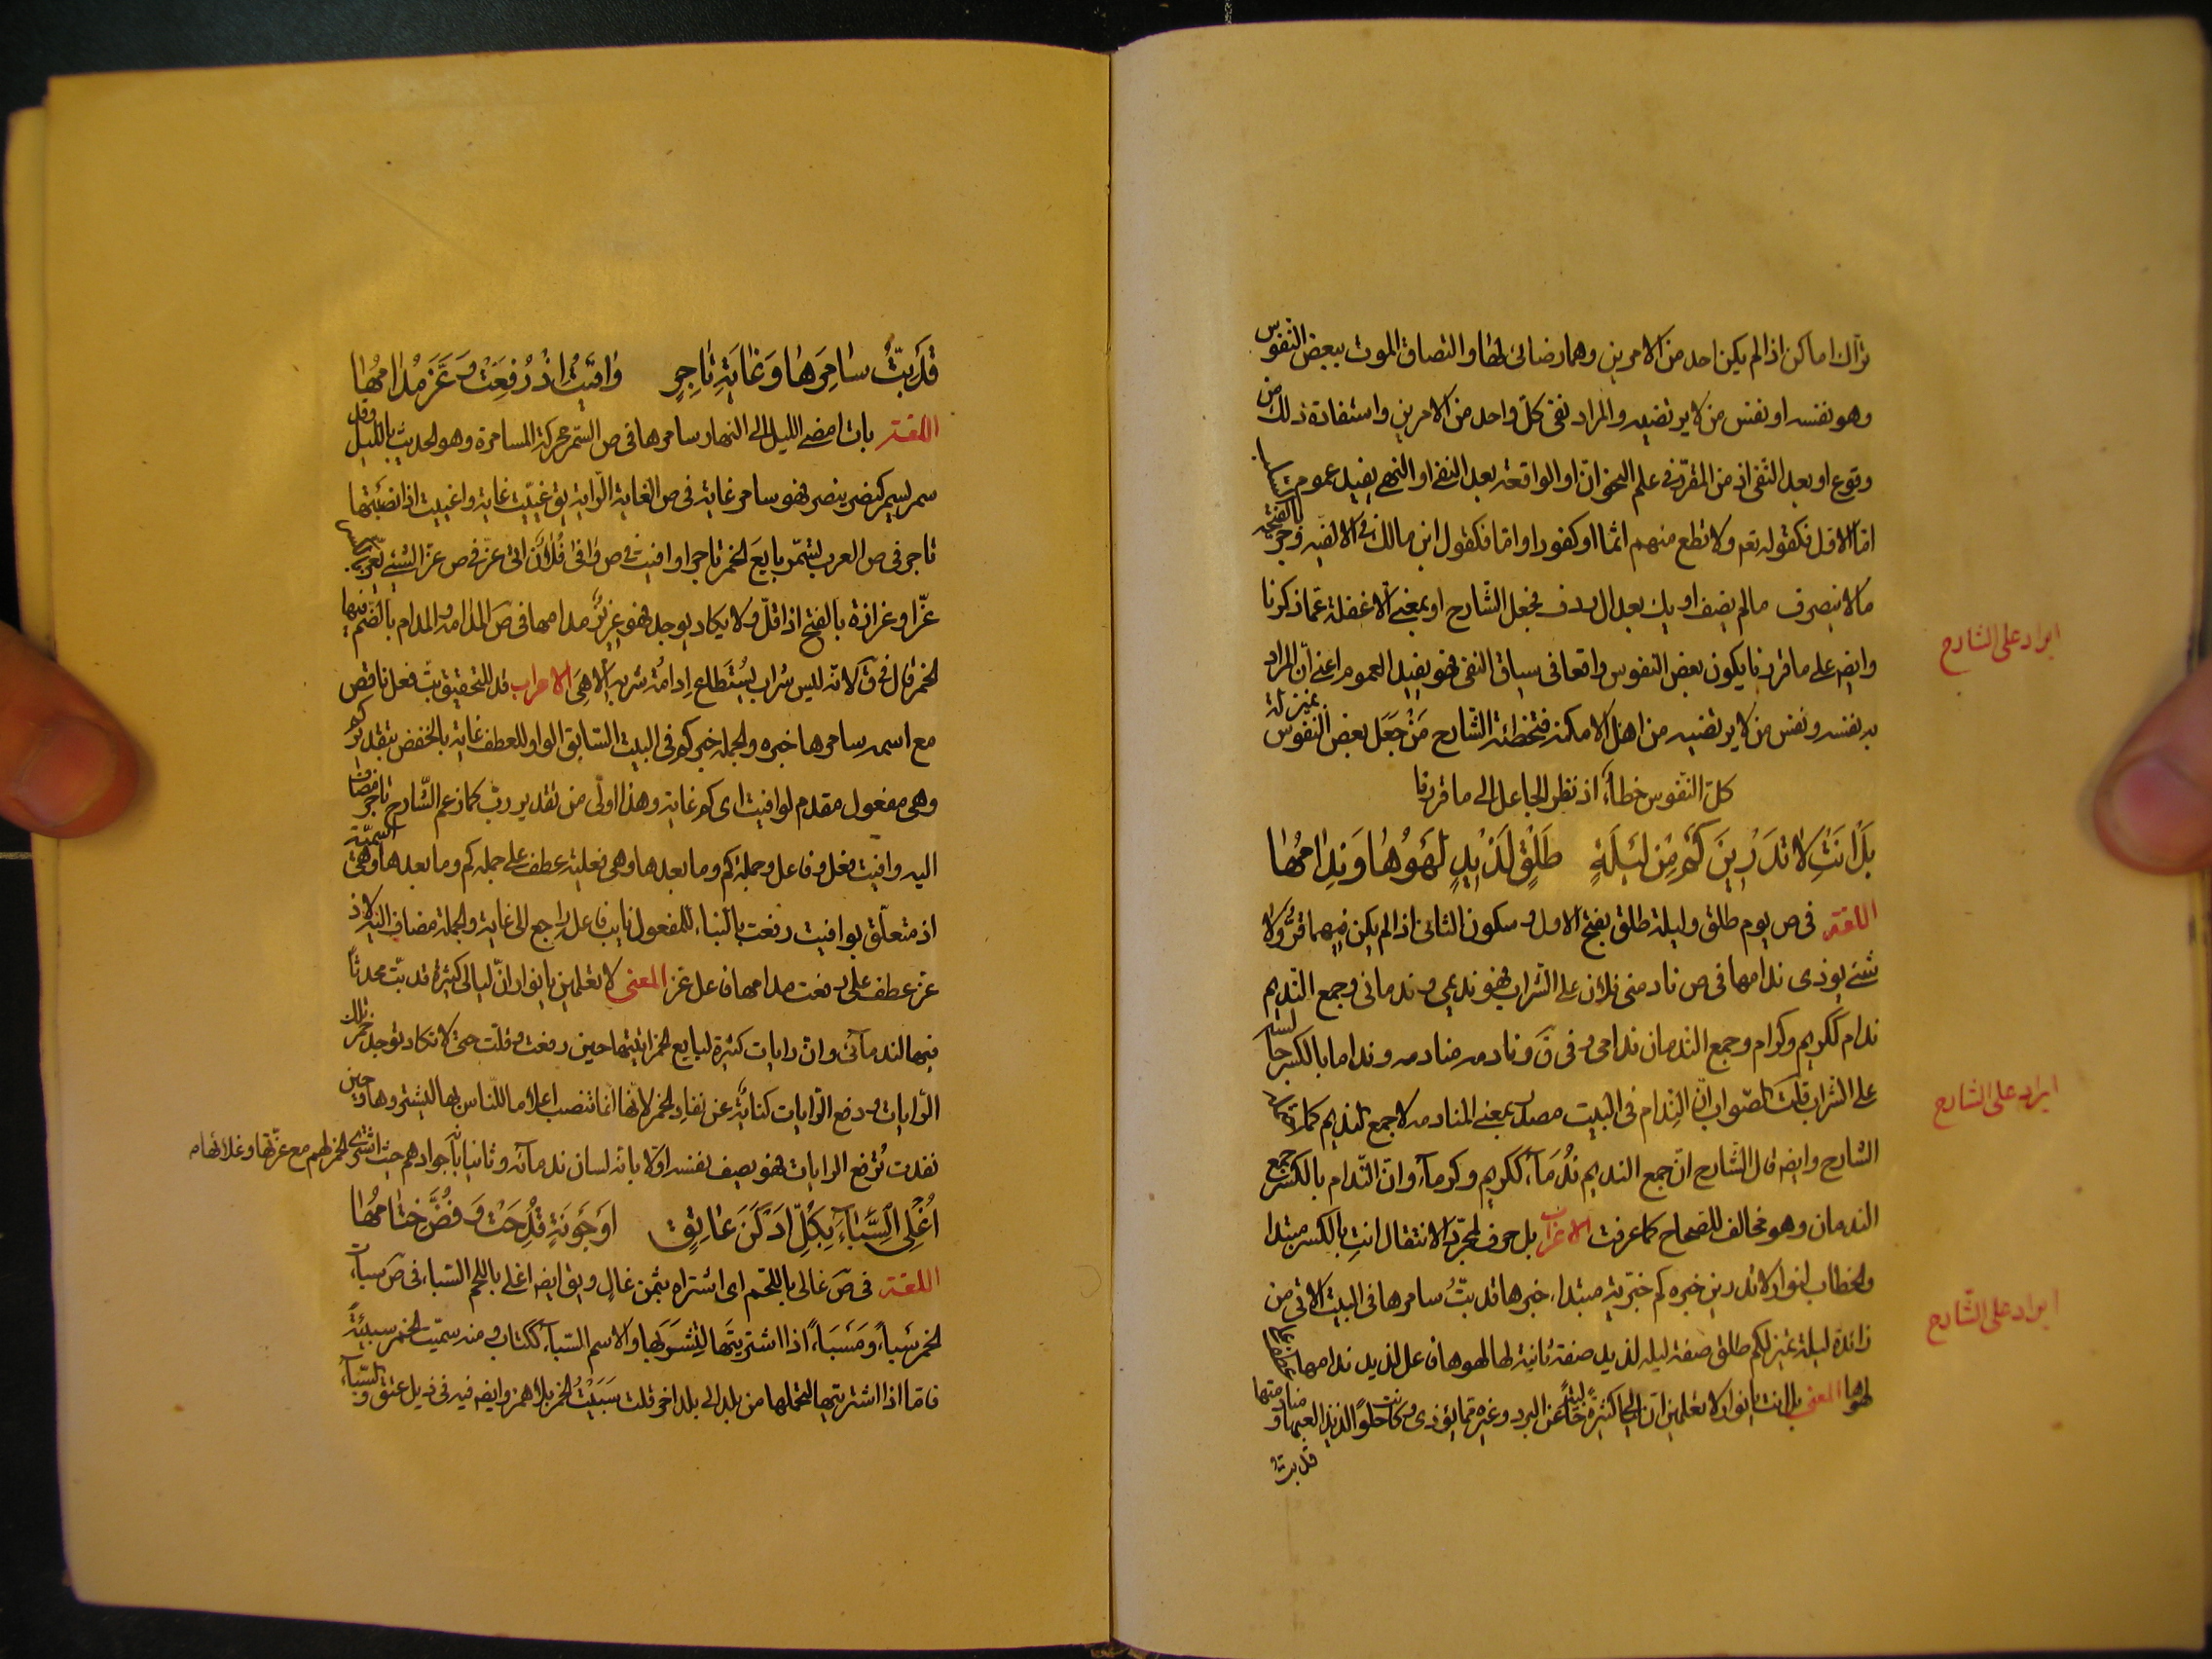 تراك اماكن اذا لم يكن احد من الامرين وهما رضائى لها والتصاق الموت ببعض النفوس
وهو نفسه او نفس من لا يرتضيه والمراد نفى كل واحد من الامرين واستفادة ذلك من
وقوع او بعد النفى اذ من المقرّر فى علم النحو انّ او الواقعة بعد النفى او النهى يفيد عموم
امّا الاول فكقوله تعم ولا تطع منهم اثما او كفورا وامّا فكقول ابن مالك فى الالفيه وجرّ بالفتحة
ما لا ينصرف مالم يضف او يك بعد ال ردف فجعل الشارح او بمعنى الا غفلة عمّا ذكرنا
وايضه على ما قررنا يكون بعض النفوس واقعا فى سياق النفى فهو يفيد العموم اعنى انّ المراد
به نفسه ونفس من لا يرتضيه من اهل الامكنه فتخطئة الشارح مَنْ جَعَل بعض النفوس بمنزلة
كلّ النفوس خطأ اذ نظر الجاعل الى ما قررنا
بَلْ اَنْتِ لا تَدْرِينَ كَمْ مِنْ لَيْلَةٍ طَلْقٍ لَذِيذٍ لَهْوُهٰا وَنِدٰامُهٰا
اللغة فى ص يوم طلق وليلة طلق بفتح الاول وسكون الثانى اذا لم يكن فيهما قرّ ولا
شئ يوذى ندامها فى ص نادمنى فلان على الشراب فهو نديمى وندمانى وجمع النديم
ندام ككريم وكرام وجمع الندمان ندامى وفى ق ونادمه منادمه وندا ما بالكسر جالسه
على الشراب قلت الصّواب انّ النِدام فى البيت مصدر بمعنى المنادمه لا جمع لنديم كما
الشارح وايضه قال الشارح انّ جمع النديم نُدَمَآء ككريم وكرمآء وانّ النّدام بالكسر جمع
الندمان وهو مخالف للصحاح كما عرفت الاعراب بل حرف لمجرّد الانتقال انتِ بالكسر مبتدا
والخطاب لنوار لا تدرين خبره كم خبريّة مبتداء خبرها قد بتُّ سامرها فى البيت الاتى من
زائدة ليلة تميز لكم طلق صفة ليله لذيذ صفة ثانية لها لهوها فاعل لذيذ ندامها عطف على
لهوها المعنى بل انت يا نوار لا تعلمين انّ ليالى كثيرة عن البرد وغيره ممّا يؤذى وكانت حلوًا لذيذ لعبها ومنادمتها
قد بتّ
ايراد على الشارح
ايراد على الشارح
ايراد على الشارح
قَدْ بِتُّ سٰامِرَهٰا وَغٰايَةِ تٰاجِرٍ وٰافَيْتُ اِذْ رُفِعَتْ وَعَزَّ مُدٰامُهٰا
اللغة بات امضى الليل الى النهار سامرها فى ص السَّمر محركة المسامرة وهو الحديث بالليل وقد
سمر يسمر كنصر ينصر فهو سامر غاية فى ص الغاية الراية يق غيّيت غاية واغييت اذا نصبتها
تاجر فى ص العرب تسمّى بايع الخمر تاجرا وافيت فى ص وافى فُلان اتى عزّ فى ص عزّ الشئ يعزّ
عزّا وعزازة بالفتح اذا قلّ ولا يكاد يوجد فهو عزيزٌ مدامها فى ص المدامه والمدام بالضم فيهما
الخمر قال فى ق لانّه ليس شراب يُستَطاع اِدامَة شربه الا هِىَ الاعراب قد للتحقيق بتّ فعل ناقص
مع اسمه سامرها خبره والجملة خبر كم فى البيت السّابق الواو للعطف غاية بالخفض بتقدير كم
وهى مفعول مقدم لوافيت اى كم غاية وهذا اولى من تقدير ربّ كما زعم الشّارح تاجر مضاف
اليه وافيت فعل وفاعل وجملة كم وما بعدها وهى فعلية عطف على جملة كم وما بعدها وهى اسميّة
اذ متعلّق بوافيت رفعت بالبناء للمفعول نايب فاعل راجع الى غاية والجملة مضاف اليه لاذ
عزّ عطف على رفعت مدامها فاعل عزّ المعنى لا تعلمين يا نوار انّ ليالى كثيرة قد بتّ محدثاً
فيها لندمآئى وانّ رايات كثيرة لبايع الخمر اتيتها حين رفعت وقلّت حتى لا تكاد توجد خمر تلك
الرّايات ورفع الرّايات كنايةً عن نفاد الخمر لانّها انّما تنصب اعلاما للنّاس بها ليشتروها وحين
نفدت تُرفع الرايات فهو يصف نفسه اوّلا بانّه لسان ندمآئه وثانيا بانّه جوادهم حيث اشترى الخمر لهم مع عزّتها وغلائها
اُغْلِى السِّبٰاءَ بِكُلِّ اَدْكَنَ عٰاتِقٍ اَوْ جَوْنَةٍ قُدِحَتْ وَفُضَّ خِتٰامُهٰا
اللغة فى ص غالى باللحم اى اشتراه بثمن غالٍ ويق ايضه اغلى باللحم السّباء فى ص سبات
الخمر سَباءً وَمَسْبَاءً اذا اشتريتَها لِتَشْرَبَها والاسم السّباء ككتاب ومنه سميت الخمر سبيئةً
فامّا اذا اشتريتها لتحملها من بلد الى بلد اخر قلت سَبَيْتُ الخمر بلا همز وايضه فيه فى ذيل عتق والسّباء